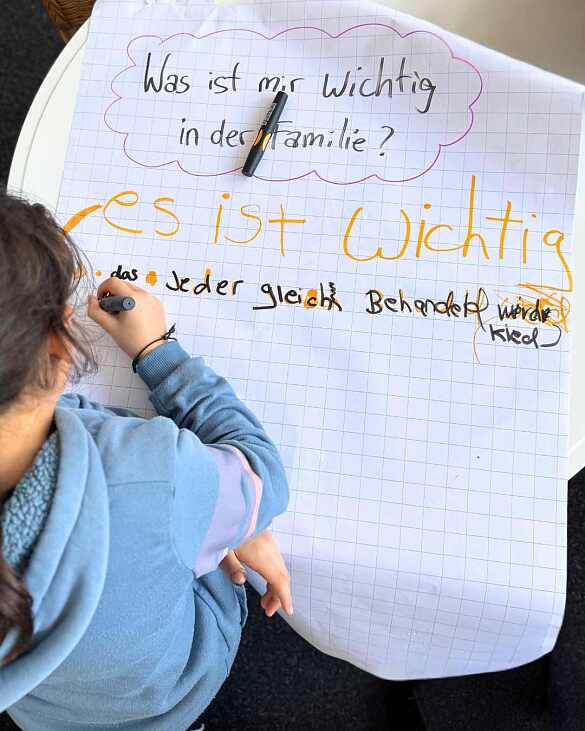 Was ist mir Wichtig
in der Familie?
es ist wichtig
das Jeder gleich Behandelt werde
Kied